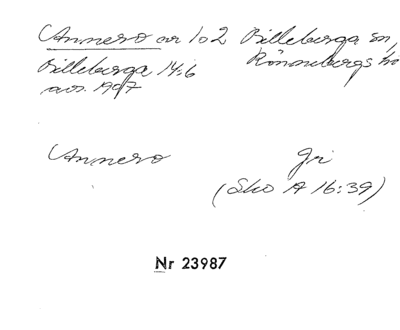 Annero nr 1 o 2 Billeberga sn,
Billeberga 14:6 Rönnebergs hd
avs. 1907
Annero Gi
(Sko A 16:39)
Nr 23987